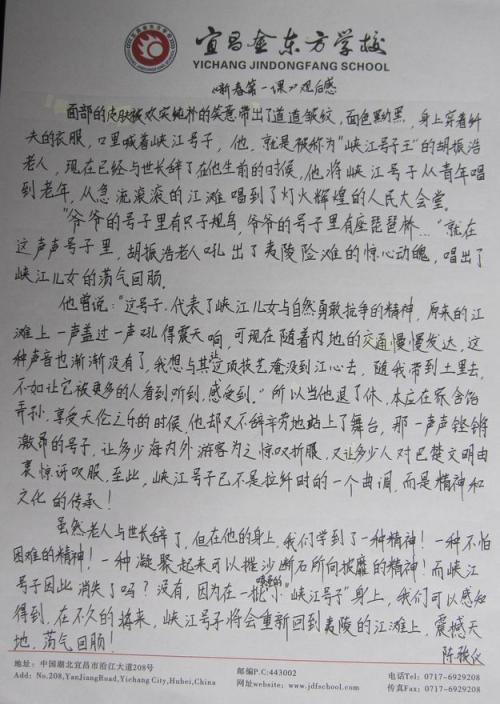 宜昌金东方学校
YICHANG JINDONGFANG SCHOOL
《新春第一课》观后感
面部的皮肤被欢实纯朴的笑意带出了道道皱纹，面色黝黑，身上穿着纤
夫的衣服，口里喊着峡江号子，他，就是被称为"峡江号子王"的胡振浩
老人，现在已经与世长辞了在他生前的时候，他将峡江号子从青年唱
到老年，从急流滚滚的江滩唱到了灯火辉煌的人民大会堂。
"爷爷的号子里有只子规鸟，爷爷的号子里有座琵琶桥…"就在
这声声号子里，胡振浩老人吼出了夷陵险滩的惊心动魄，唱出了
峡江儿女的荡气回肠。
他曾说："这号子，代表了峡江儿女与自然勇敢抗争的精神，原来的江
滩上一声盖过一声吼得震天响，可现在随着内地的交通慢慢发达，这
种声音也渐渐没有了，我想与其让这项技艺淹没到江心去，随我带到土里去，
不如让它被更多的人看到听到，感受到。"所以当他退了休，本应在家含饴
弄孙，享受天伦之乐的时候，他却又不辞辛劳地站上了舞台，那一声声铿锵
激昂的号子，让多少海内外游客为之惊叹折服，又让多少人对巴楚文明由
衷惊讶叹服，至此，峡江号子已不是拉纤时的一个曲调，而是精神和
文化的传承！
虽然老人与世长辞了，但在他的身上，我们学到了一种精神！一种不怕
困难的精神！一种凝聚起来可以推沙断石所向披靡的精神！而峡江
号子因此消失了吗？没有，因为在一批小"峡江号子"身上，我们可以感知
得到，在不久的将来，峡江号子将会重新回到夷陵的江滩上，震撼天
地，荡气回肠！
地址：中国湖北宜昌市沿江大道208号
邮编P.C:443002
电话Tel：0717-6929208
Add: No.208,YanJiangRoad,Yichang City,Hubei,China
网址website: www.jdfschool.com
传真Fax：0717-6929208